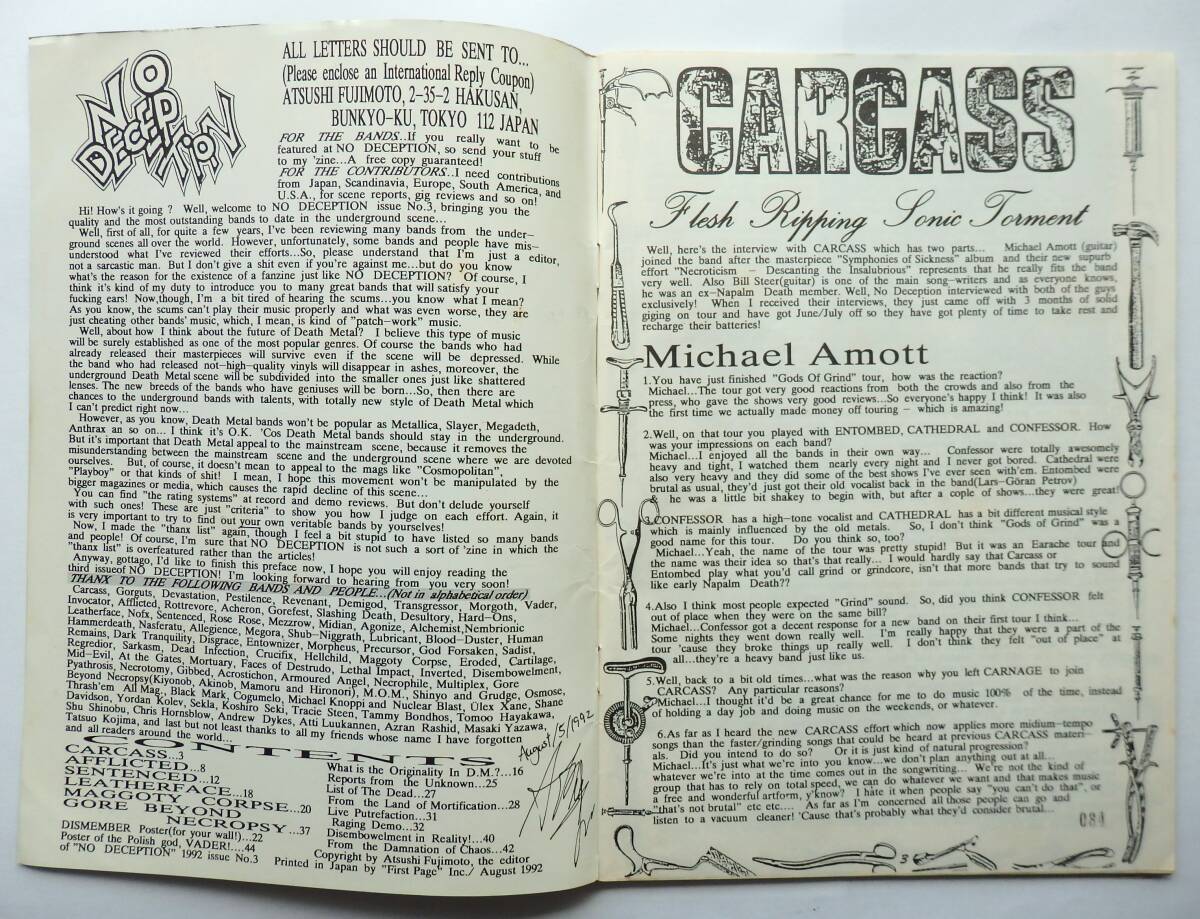 NO DECEPTION
ALL LETTERS SHOULD BE SENT TO...
(Please enclose an International Reply Coupon)
ATSUSHI FUJIMOTO, 2-35-2 HAKUSAN,
BUNKYO-KU, TOKYO 112 JAPAN
FOR THE BANDS..If you really want to be
featured at NO DECEPTION, so send your stuff
to my 'zine...A free copy guaranteed!
FOR THE CONTRIBUTORS..I need contributions
from Japan, Scandinavia, Europe, South America, and
U.S.A., for scene reports, gig reviews and so on!
Hi! How's it going ? Well, welcome to NO DECEPTION issue No.3, bringing you the
quality and the most outstanding bands to date in the underground scene...
Well, first of all, for quite a few years, I've been reviewing many bands from the under-
ground scenes all over the world. However, unfortunately, some bands and people have mis-
understood what I've reviewed their efforts...So, please understand that I'm just a editor,
not a sarcastic man. But I don't give a shit even if you're against me...but do you know
what's the reason for the existence of a fanzine just like NO DECEPTION? Of course, I
think it's kind of my duty to introduce you to many great bands that will satisfy your
fucking ears! Now,though, I'm a bit tired of hearing the scums...you know what I mean?
As you know, the scums can't play their music properly and what was even worse, they are
just cheating other bands' music, which, I mean, is kind of "patch-work" music.
Well, about how I think about the future of Death Metal? I believe this type of music
will be surely established as one of the most popular genres. Of course the bands who had
already released their masterpieces will survive even if the scene will be depressed. While
the band who had released not-high-quality vinyls will disappear in ashes, moreover, the
underground Death Metal scene will be subdivided into the smaller ones just like shattered
lenses. The new breeds of the bands who have geniuses will be born...So, then there are
chances to the underground bands with talents, with totally new style of Death Metal which
I can't predict right now...
However, as you know, Death Metal bands won't be popular as Metallica, Slayer, Megadeth,
Anthrax an so on... I think it's O.K. 'Cos Death Metal bands should stay in the underground.
But it's important that Death Metal appeal to the mainstream scene, because it removes the
misunderstanding between the mainstream scene and the underground scene where we are devoted
ourselves. But, of course, it doesn't mean to appeal to the mags like "Cosmopolitan",
"Playboy" or that kinds of shit! I mean, I hope this movement won't be manipulated by the
bigger magazines or media, which causes the rapid decline of this scene...
You can find "the rating systems" at record and demo reviews. But don't delude yourself
with such ones! These are just "criteria" to show you how I judge on each effort. Again, it
is very important to try to find out your own veritable bands by yourselves!
Now, I made the "thanx list" again, though I feel a bit stupid to have listed so many bands
and people! Of course, I'm sure that NO DECEPTION is not such a sort of 'zine in which the
"thanx list" is overfeatured rather than the articles!
Anyway, gottago, I'd like to finish this preface now, I hope you will enjoy reading the
third issueof NO DECEPTION! I'm looking forward to hearing from you very soon!
THANX TO THE FOLLOWING BANDS AND PEOPLE...(Not in alphabetical order)
Carcass, Gorguts, Devastation, Pestilence, Revenant, Demigod, Transgressor, Morgoth, Vader,
Invocator, Afflicted, Rottrevore, Acheron, Gorefest, Slashing Death, Desultory, Hard-Ons,
Leatherface, Nofx, Sentenced, Rose Rose, Mezzrow, Midian, Agonize, Alchemist,Nembrionic
Hammerdeath, Nasferatu, Allegience, Megora, Shub-Niggrath, Lubricant, Blood-Duster, Human
Remains, Dark Tranquility, Disgrace, Entownizer, Morpheus, Precursor, God Forsaken, Sadist,
Regredior, Sarkasm, Dead Infection, Crucifix, Hellchild, Maggoty Corpse, Eroded, Cartilage,
Mid-Evil, At the Gates, Mortuary, Faces of Destrudo, Lethal Impact, Inverted, Disembowelment,
Pyathrosis, Necrotomy, Gibbed, Acrostichon, Armoured Angel, Necrophile, Multiplex, Gore
Beyond Necropsy(Kiyonob, Akinob, Mamoru and Hironori), M.O.M., Shinyo and Grudge, Osmose,
Thrash'em All Mag., Black Mark, Cogumelo, Michael Knoppi and Nuclear Blast, Ülex Xane, Shane
Davidson, Yordan Kolev, Sekla, Koshiro Seki, Tracie Steen, Tammy Bondhos, Tomoo Hayakawa,
Shu Shinobu, Chris Hornsblow, Andrew Dykes, Atti Luukannen, Azran Rashid, Masaki Yazawa,
Tatsuo Kojima, and last but not least thanks to all my friends whose name I have forgotten
and all readers around the world...
August/5/1992
CONTENTS
CARCASS...3
AFFLICTED...8
SENTENCED...12
LEATHERFACE...18
MAGGOTY CORPSE...20
GORE BEYOND
NECROPSY...37
DISMEMBER Poster(for your wall!)...22
Poster of the Polish god, VADER!....44
of "NO DECEPTION" 1992 issue No.3
What is the Originality In D.M.?...16
Reports from the Unknown...25
List of The Dead...27
From the Land of Mortification...28
Live Putrefaction...31
Raging Demo...32
Disembowelment in Reality!...40
From the Damnation of Chaos...42
Copyright by Atsushi Fujimoto, the editor
Printed in Japan by "First Page" Inc./ August 1992
CARCASS
Flesh Ripping Sonic Torment
Well, here's the interview with CARCASS which has two parts... Michael Amott (guitar)
joined the band after the masterpiece "Symphonies of Sickness" album and their new suburb
effort "Necroticism - Descanting the Insalubrious" represents that he really fits the band
very well. Also Bill Steer(guitar) is one of the main song-writers and as everyone knows,
he was an ex-Napalm Death member. Well, No Deception interviewed with both of the guys
exclusively! When I received their interviews, they just came off with 3 months of solid
giging on tour and have got June/July off so they have got plenty of time to take rest and
recharge their batteries!
Michael Amott
1.You have just finished "Gods Of Grind" tour, how was the reaction?
Michael...The tour got very good reactions from both the crowds and also from the
press, who gave the shows very good reviews...So everyone's happy I think! It was also
the first time we actually made money off touring - which is amazing!
2.Well, on that tour you played with ENTOMBED, CATHEDRAL and CONFESSOR. How
was your impressions on each band?
Michael...I enjoyed all the bands in their own way... Confessor were totally awesomely
heavy and tight, I watched them nearly every night and I never got bored. Cathedral were
also very heavy and they did some of the best shows I've ever seen with'em. Entombed were
brutal as usual, they'd just got their old vocalist back in the band(Lars-Göran Petrov)
& he was a little bit shakey to begin with, but after a cople of shows...they were great!
3.CONFESSOR has a high-tone vocalist and CATHEDRAL has a bit different musical style
which is mainly influenced by the old metals. So, I don't think "Gods of Grind" was a
good name for this tour. Do you think so, too?
Michael...Yeah, the name of the tour was pretty stupid! But it was an Earache tour and
the name was their idea so that's that really... I would hardly say that Carcass or
Entombed play what you'd call grind or grindcore, isn't that more bands that try to sound
like early Napalm Death??
4.Also I think most people expected "Grind" sound. So, did you think CONFESSOR felt
out of place when they were on the same bill?
Michael...Confessor got a decent response for a new band on their first tour I think...
Some nights they went down really well. I'm really happy that they were a part of the
tour 'cause they broke things up really well. I don't think they felt "out of place" at
all...they're a heavy band just like us.
5.Well, back to a bit old times...what was the reason why you left CARNAGE to join
CARCASS? Any particular reasons?
Michael...I thought it'd be a great chance for me to do music 100% of the time, instead
of holding a day job and doing music on the weekends, or whatever.
6.As far as I heard the new CARCASS effort which now applies more midium-tempo
songs than the faster/grinding songs that could be heard at previous CARCASS materi-
als. Did you intend to do so? Or it is just kind of natural progression?
Michael...It's just what we're into you know...we don't plan anything out at all...
whatever we're into at the time comes out in the songwriting... We're not the kind of
group that has to rely on total speed, we can do whatever we want and that makes music
a free and wonderful artform, y'know? I hate it when people say "you can't do that", or
"that's not brutal" etc etc.... As far as I'm concerned all those people can go and
listen to a vacuum cleaner! 'Cause that's probably what they'd consider brutal...
084
3